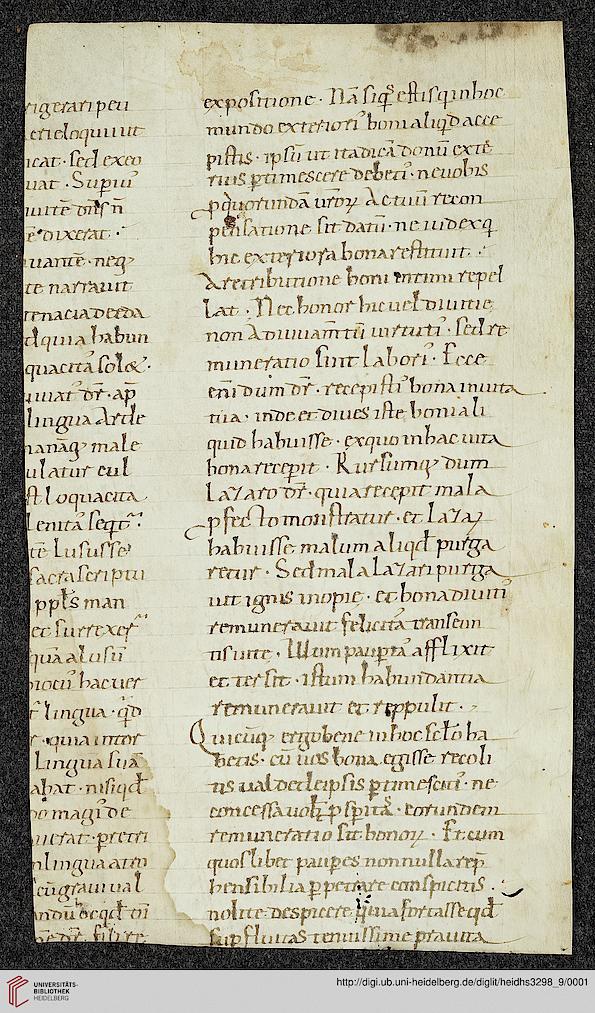 rigerari peti
erieloqui ut
icat · sed exeo
uat · Superuı᷒
uitē dn̄s n̄
ē dixerat ·
uantē · neq;
te narrauit
tenacia deeda
d quia habun
quacitā solet ·
uiuat᷒ dr̄ · ap̄
lingua ardé
nanāq; male
ulatur eul
st loquacita
lenitā seqt᷒
tē lususse
sacra scriptu
ppl̄s man
et surrexer̄
quā alusū
iocū hac uer
lingua · qd̄
r · quia inter
lingua suā
abat · nisi qd̄
o magı᷒ de
uerat · p̄ctri
n lingua atro
cū graui ual
ndū hoc qd̄ tn̄
dr̄ · fili re
expositione · Nā siq̄s estis qui in hoc
mundo exteriorı᷒ boni aliqd̄ acce
pistis · ipsū ut ita dicā donū exte
rius ꝑtimescere debetı᷒ · ne uobis
ꝓ quorundā ur̄oꝝ actuū recon
pensatione sit datū · ne iudex q̄
hic exteriora bona restituit ·
a retributione boni intimi repel
lat · Nec honor hic uel diuitie
non adiuuamtū uirtutı᷒ · sed re
muneratio sint laborı᷒ · Ecce
eni dum dr̄ · recepistı᷒ bona in uita
tua · inde et diues iste boni ali
quid habuisse · ex quo in hac uita
bona recepit · Rursumq; dum
lazaro dr̄ · quia recepit mala
ꝓfecto monstratur · et lazaꝝ
habuisse malum aliqd̄ purga
retur · Sed mala lazari purga
uit ignis inopie · et bona diuitı᷒
remunerauit felicitā transeun
tis uite · Illum paupertā afflixit
et tersit · istum habundantia
remunerauit et reppulit ·
Quicūq; ergo bene in hoc sclo ha
betis · cū uos bona egisse recoli
tis ualde de ipsis ꝑtimescitı᷒ · ne
concessa uob; ꝓsperitā᷒ · eorundem
remuneratio sit bonoꝝ · Et cum
quoslibet pauperes nonnulla rep̄
hensibilia ꝑpetrare conspicitis ·
nolite despicere quia fortasse qd̄
suꝑfluitas tenuissime prauita
UNIVERSITÄTS-
BIBLIOTHEK
HEIDELBERG
http://digi.ub.uni-heidelberg.de/diglit/heidhs3298_9/0001